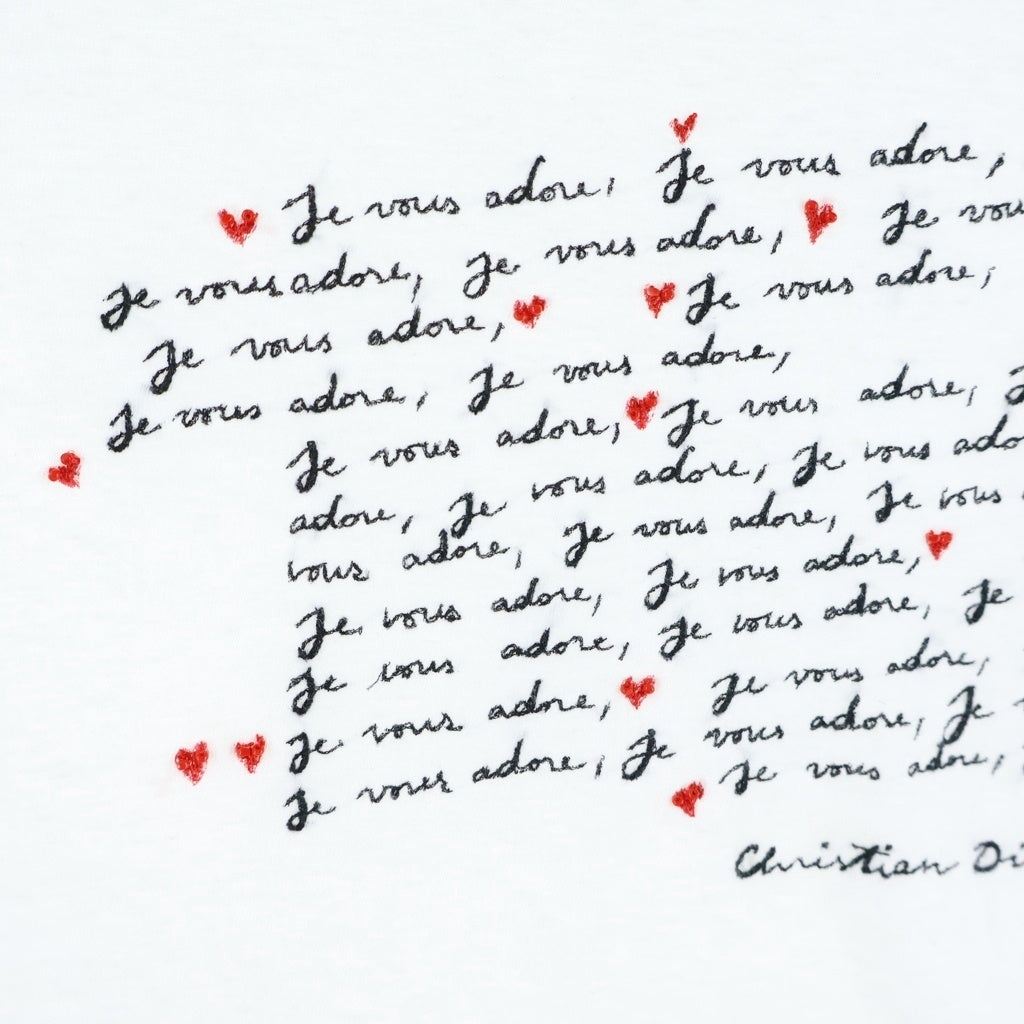 Je vous adore, Je vous adore,
Je vous adore, Je vous adore, Je
Je vous adore, Je vous adore,
Je vous adore, Je vous adore,
Je vous adore, Je vous adore,
adore, Je vous adore, Je vous
vous adore, Je vous adore, Je vous
Je vous adore, Je vous adore,
Je vous adore, Je vous adore, Je
Je vous adore, Je vous adore,
Je vous adore, Je vous adore, Je
Je vous adore,
Christian